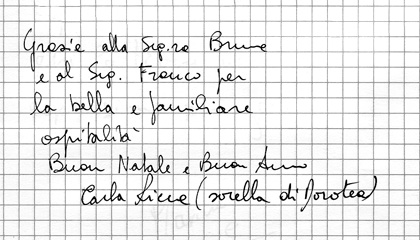 Grazie alla Sig.ra Bruna
e al Sig. Franco per
la bella e familiare
ospitalità
Buon Natale e Buon Anno
Carla (sorella di Dorotea)